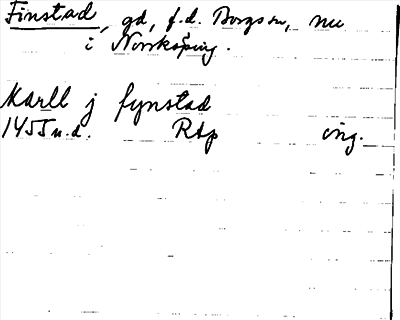 Finstad, gd, f.d. Borgs sn, nu
i Norrköping.
Karll j fynstad
1455 u.d. Rtp orig.